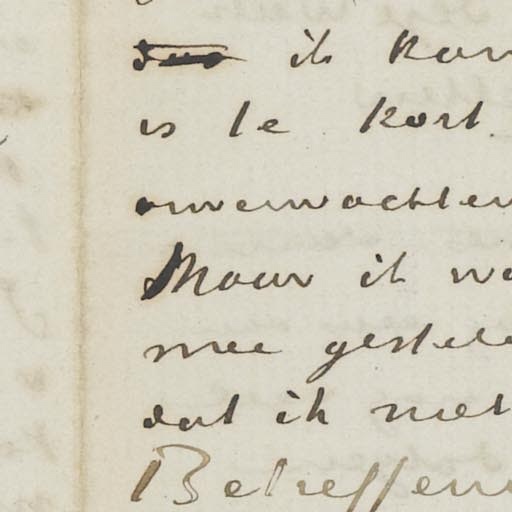 ik kan
is te kort.
onverwachten
Maar ik wa
mee gestele
dat ik met
Betreffen